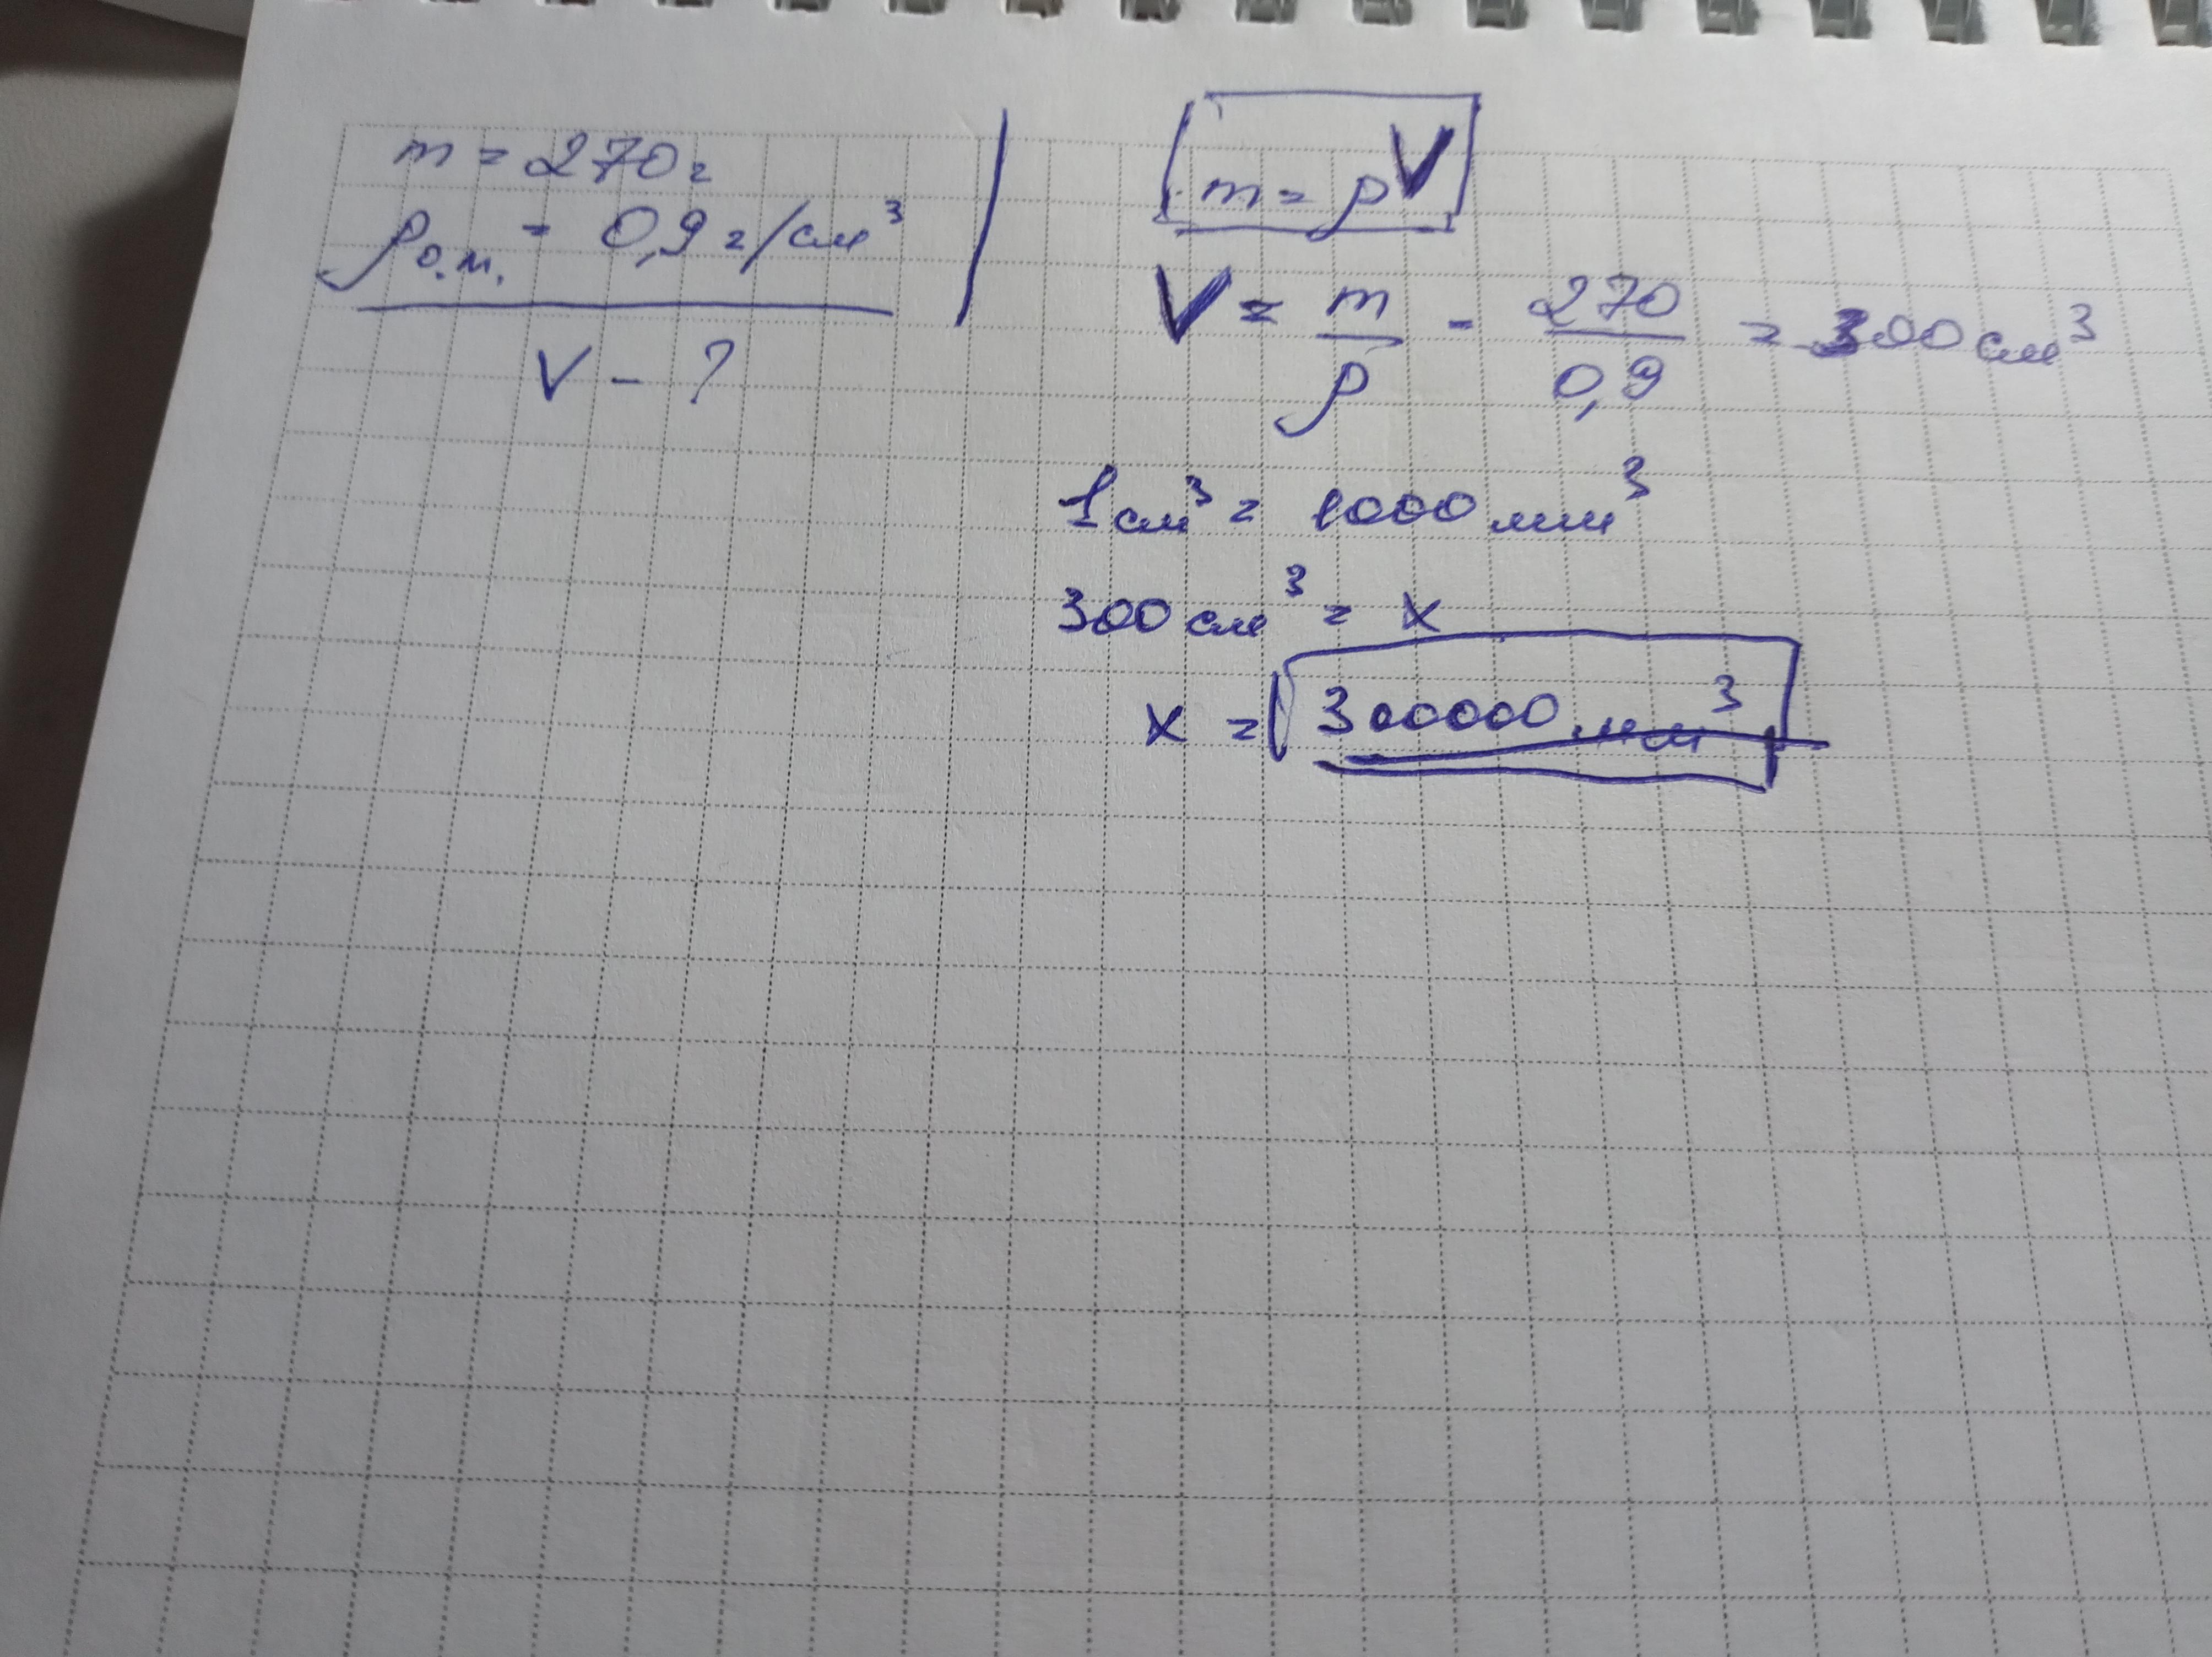 m = 270 г
ρо.м. = 0,9 г/см³
V - ?
m = ρV
V = m/ρ = 270/0,9 = 300 см³
1 см³ = 1000 мм³
300 см³ = x
x = 300000 мм³